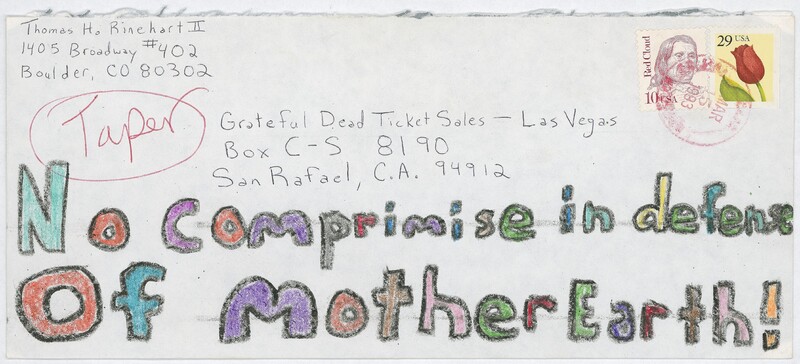 Thomas H. Rinehart II
1405 Broadway #402
Boulder, CO 80302
Taper
Grateful Dead Ticket Sales — Las Vegas
Box C-S 8190
San Rafael, C.A. 94912
Red Cloud
10¢ USA
29 USA
MAR
No comprimise in defense
Of Mother Earth!